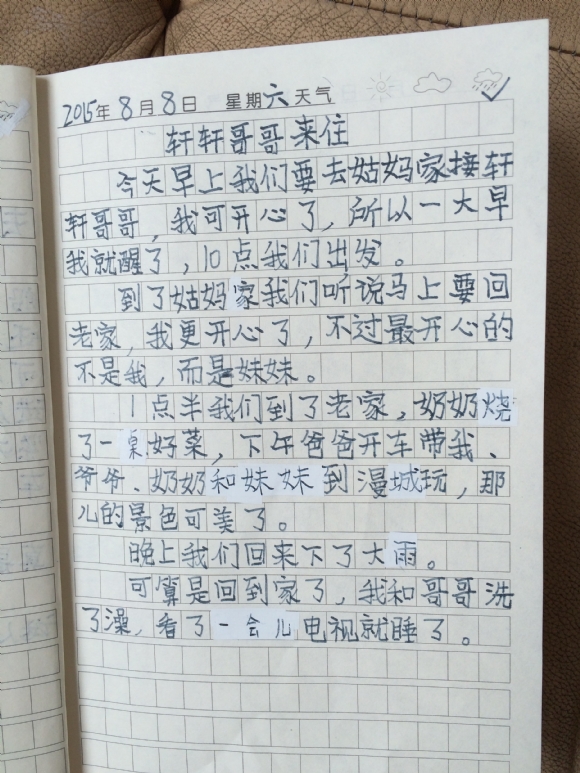 2015年8月8日 星期六天气
轩轩哥哥来住
今天早上我们要去姑妈家接轩
轩哥哥，我可开心了，所以一大早
我就醒了，10点我们出发。
到了姑妈家我们听说马上要回
老家，我更开心了，不过最开心的
不是我，而是妹妹。
1点半我们到了老家，奶奶烧
了一桌好菜，下午爸爸开车带我、
爷爷、奶奶和妹妹到漫城玩，那
儿的景色可美了。
晚上我们回来下了大雨。
可算是回到家了，我和哥哥洗
了澡，看了一会儿电视就睡了。